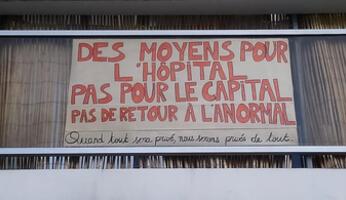 DES MOYENS POUR
L'HÔPITAL
PAS POUR LE CAPITAL
PAS DE RETOUR À L'ANORMAL
Quand tout sera privé, nous serons privés de tout.